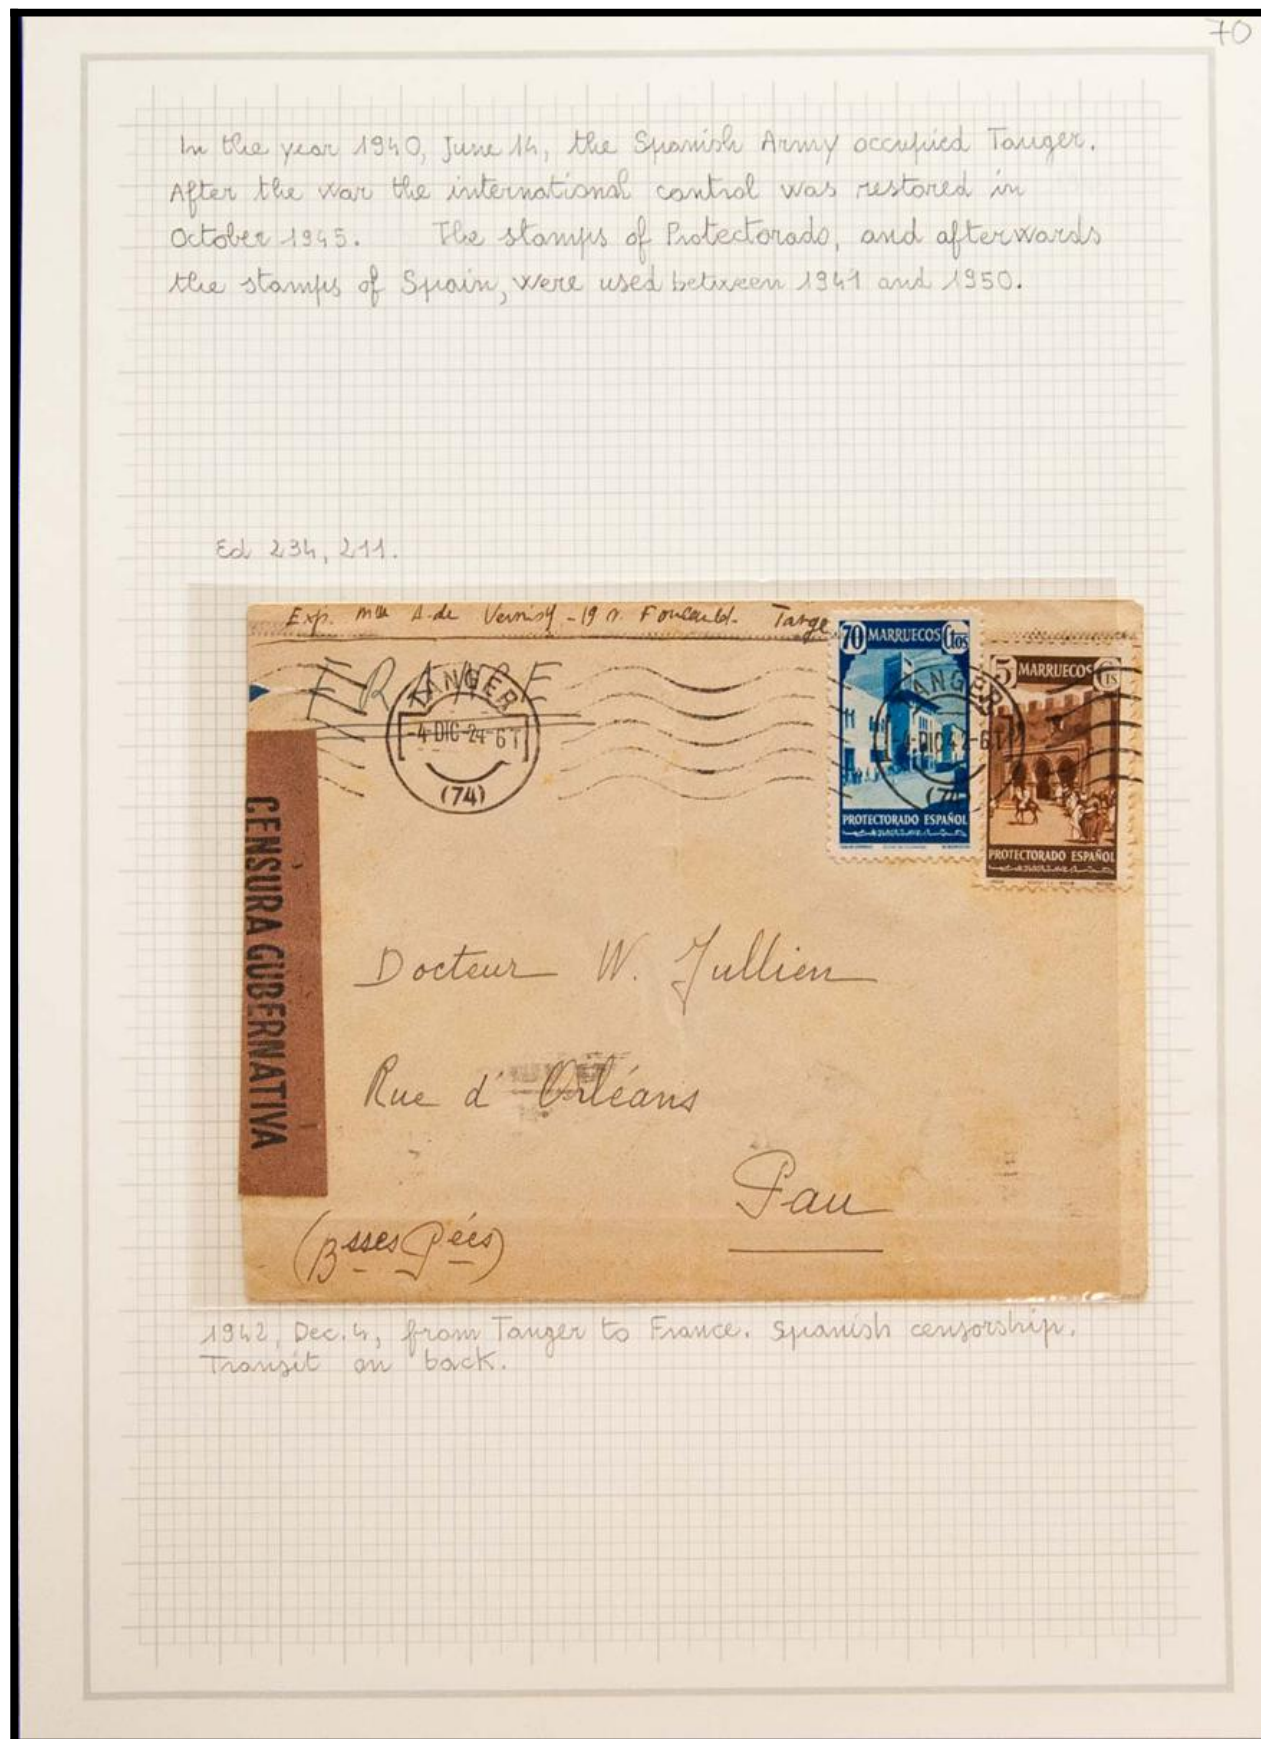 70
In the year 1940, June 14, the Spanish Army occupied Tanger.
After the war the international control was restored in
October 1945. The stamps of Protectorado, and afterwards
the stamps of Spain, were used between 1941 and 1950.
Ed 234, 211.
Exp. Mme A. de - 19 r. Foucauld. Tange
FRANCE
TANGER
-4-DIC-24-6T
(74)
70 MARRUECOS Ctos
PROTECTORADO ESPAÑOL
5 MARRUECOS Cts
PROTECTORADO ESPAÑOL
TANGER
-4-DIC 42-6T
(74)
CENSURA GUBERNATIVA
Docteur W. Jullien
Rue d'Orléans
Pau
(Bsses Pées)
1942, Dec. 4, from Tanger to France. Spanish censorship.
Transit on back.